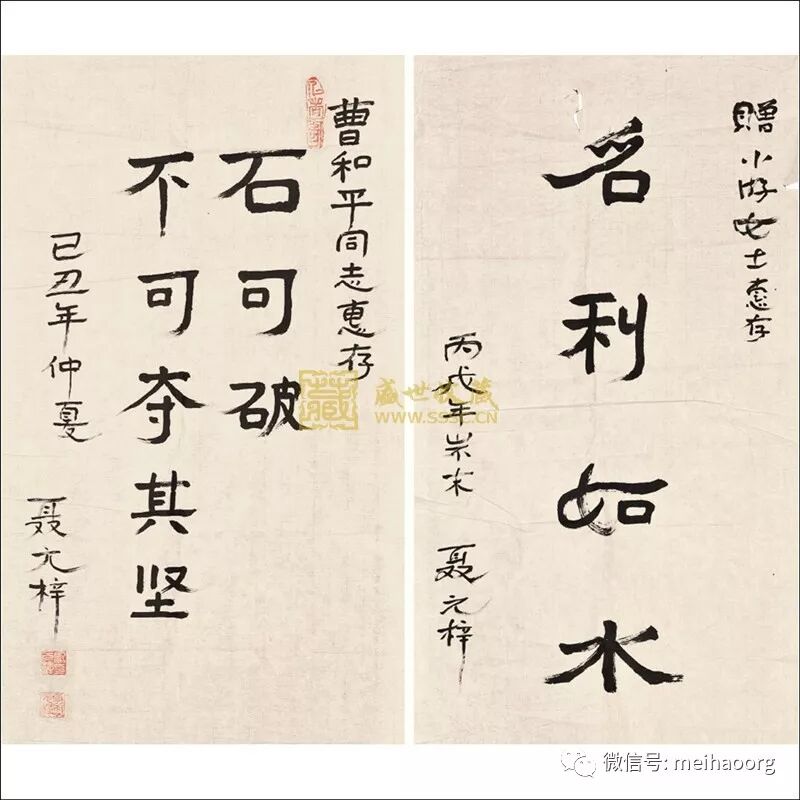 贈小游女士惠存
名利如水
丙戌年岁末
聂元梓
曹和平同志惠存
石可破
不可夺其坚
己丑年仲夏
聂元梓
藏
盛世收藏
WWW.SSSC.CN
微信号: meihaoorg